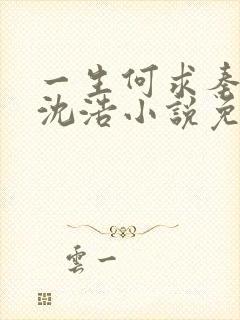 一生何求秦
沈浩小説免
雲一